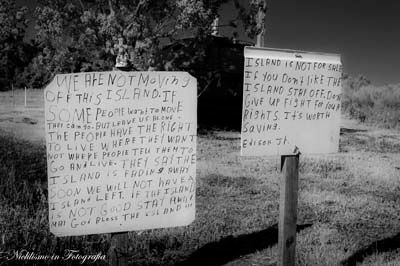 WE ARE NOT MOVING
OFF THIS ISLAND. IF
SOME PEOPLE WANT TO MOVE
THEY CAN GO. BUT LEAVE US ALONE.
THE PEOPLE HAVE THE RIGHT
TO LIVE WHERE THEY WANT
NOT WHERE PEOPLE TELL THEM TO
GO AND LIVE. THEY SAY THE
ISLAND IS FADING AWAY
SOON WE WILL NOT HAVE A
ISLAND LEFT. IF THE ISLAND
IS NOT GOOD STAY AWAY.
MAY GOD BLESS THE ISLAND
ISLAND IS NOT FOR SALE
IF YOU DON'T LIKE THE
ISLAND STAY OFF. DON'T
GIVE UP FIGHT FOR YOUR
RIGHTS. IT'S WORTH
SAVING.
EDISON JR.
Nichilismo in Fotografia